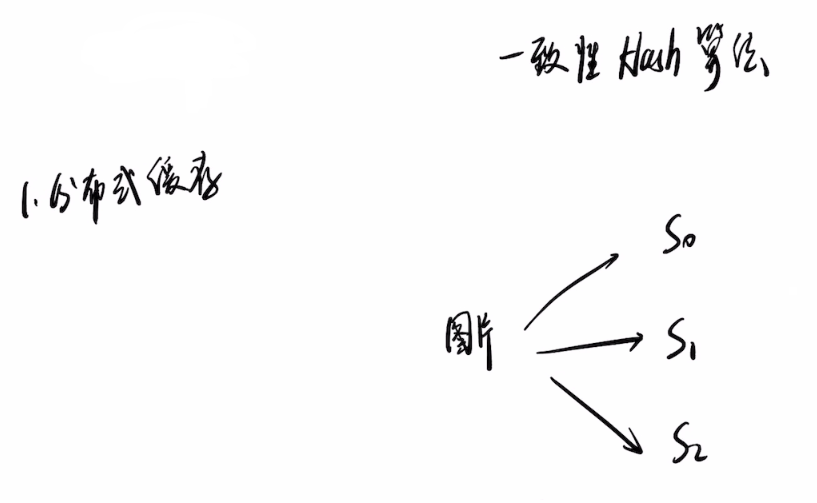 一致性 Hash 算法
1. 分布式缓存
S0
图片
S1
S2